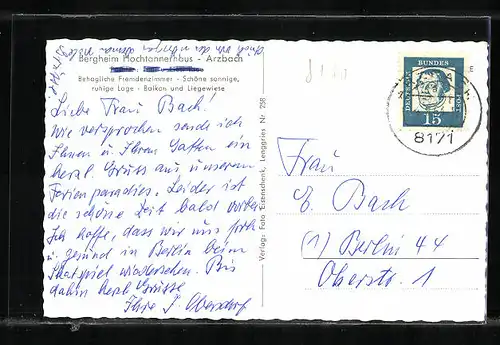 Bergheim Hochtannerhaus - Arzbach
Behagliche Fremdenzimmer - Schöne sonnige,
ruhige Lage - Balkon und Liegewiese
Liebe Frau Bach!
Wie versprochen sende ich
Ihnen u Ihrem Gatten ein
herzl Gruss aus unserem
Ferienparadies. Leider ist
die schöne Zeit bald vorbei
Ich hoffe, dass wir uns froh
u. gesund in Berlin beim
wiedersehen. Bis
dahin herzl Grüsse
Ihre J. Obersdorf
Verlag: Foto Eisenschenk, Lenggries Nr. 258
DEUTSCHE BUNDES POST
15
8171
Frau
E. Bach
(1) Berlin 44
Oberstr. 1